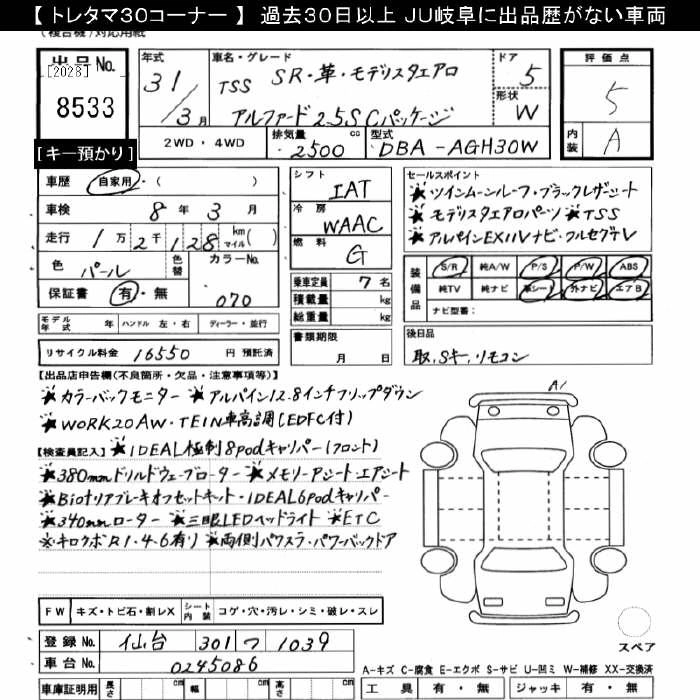 【 トレタマ30コーナー 】 過去30日以上 JU岐阜に出品歴がない車両
(複合機)対応用紙
出品 No.
[2028]
8533
[キー預かり]
年式
31/3月
車名・グレード
TSS SR・革・モデリスタエアロ
アルファード 2.5S Cパッケージ
ドア
5
形状
W
評価点
5
内装
A
2WD・4WD
排気量
2500 cc
型式
DBA-AGH30W
車歴 自家用・( )
車検 8年 3月
走行 1万 2千 128 km マイル( )
色 パール 色替 カラーNo. 070
保証書 有・無
モデル年式 年 ハンドル 左・右 ディーラー・並行
リサイクル料金 16550 円 預託済
シフト
IAT
冷房
WAAC
燃料
G
乗車定員 7名
積載量 kg
総重量 kg
書類期限
月 日
セールスポイント
★ツインムーンルーフ・ブラックレザーシート
★モデリスタエアロパーツ ★TSS
★アルパインEX11Vナビ・フルセグTV
装備品
S/R 純A/W P/S P/W ABS
純TV 純ナビ 革シート 外ナビ エアB
ナビ型番:
後日品
取,Sキ,リモコン
【出品店申告欄(不良箇所・欠品・注意事項等)】
★カラーバックモニター ★アルパイン12.8インチフリップダウン
★WORK20AW・TEIN車高調(EDFC付)
【検査員記入】★IDEAL極制8podキャリパー(フロント)
★380mmドリルドウェーブローター ★メモリーアシート・エアシート
★Bigキャリアブレーキオフセットキット・IDEAL6podキャリパー
★340mmローター ★三眼LEDヘッドライト ★ETC
※キロクボR1・4・6有り ★両側パワスラ・パワーバックドア
A1
FW キズ・トビ石・割レX シート内装 コゲ・穴・汚レ・シミ・破レ・スレ
登録 No. 仙台 301 つ 1039
車台 No. 0245086
車庫証明用 長さ cm 幅 cm 高さ cm
スペア
A-キズ C-腐食 E-エクボ S-サビ U-凹ミ W-補修 XX-交換済
工具 有・無 ジャッキ 有・無